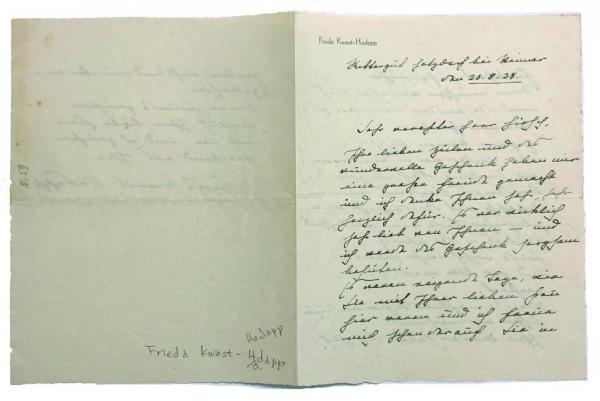 Frieda Kwast-Hodapp
Rittergut Holzdorf bei Weimar
den 20.8.28.
Sehr verehrter Herr Hirsch,
Ihre lieben Zeilen und das
wundervolle Geschenk haben mir
eine große Freude gemacht
und ich danke Ihnen sehr, sehr
herzlich dafür. Es war wirklich
sehr lieb von Ihnen – und
ich werde das Geschenk sorgsam
behüten.
Es waren reizende Tage, wie
Sie mit Ihrer lieben Frau
hier waren und ich freue
mich schon darauf, Sie in
Hodapp
Frieda Kwast-Hdapp